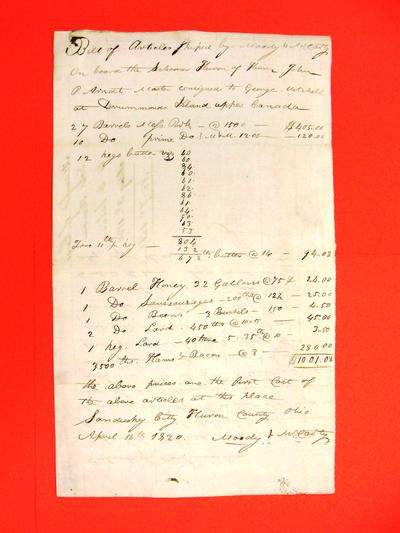 Bill of Articles Shiped by Moody & McCarty
On board the Schoner Huron of Huron John
P Arnatt Master consigned to George Mitchell
at Drummonds Island upper Canada
27 Barrels Mess Pork - @ 1500 - $405.00
10 Do prime Do 12.00 - 120.00
12 kegs butter viz 60
60
84
60
61
62
86
61
64
50
63
53
Tare 11 lb pr keg - 804
132
672 lb butter @ 14 - 94.08
1 Barrel Honey 32 Gallons @ 75 24.00
1 Do Sausausages - 200 lbs @ 12½ - 25.00
1 Do Beens - 3 Bushels - 150 4.50
2 Do Lard - 450 lbs @ 10 45.00
1 keg Lard - 35 lb @ 10 - 3.50
3500 lbs. Hams & Bacon - @ 8 - 280.00
$1001.08
the above prices are the first Cost of
the above articles at this place
Sandusky City Huron County Ohio
April 16th 1820. Moody & McCarty